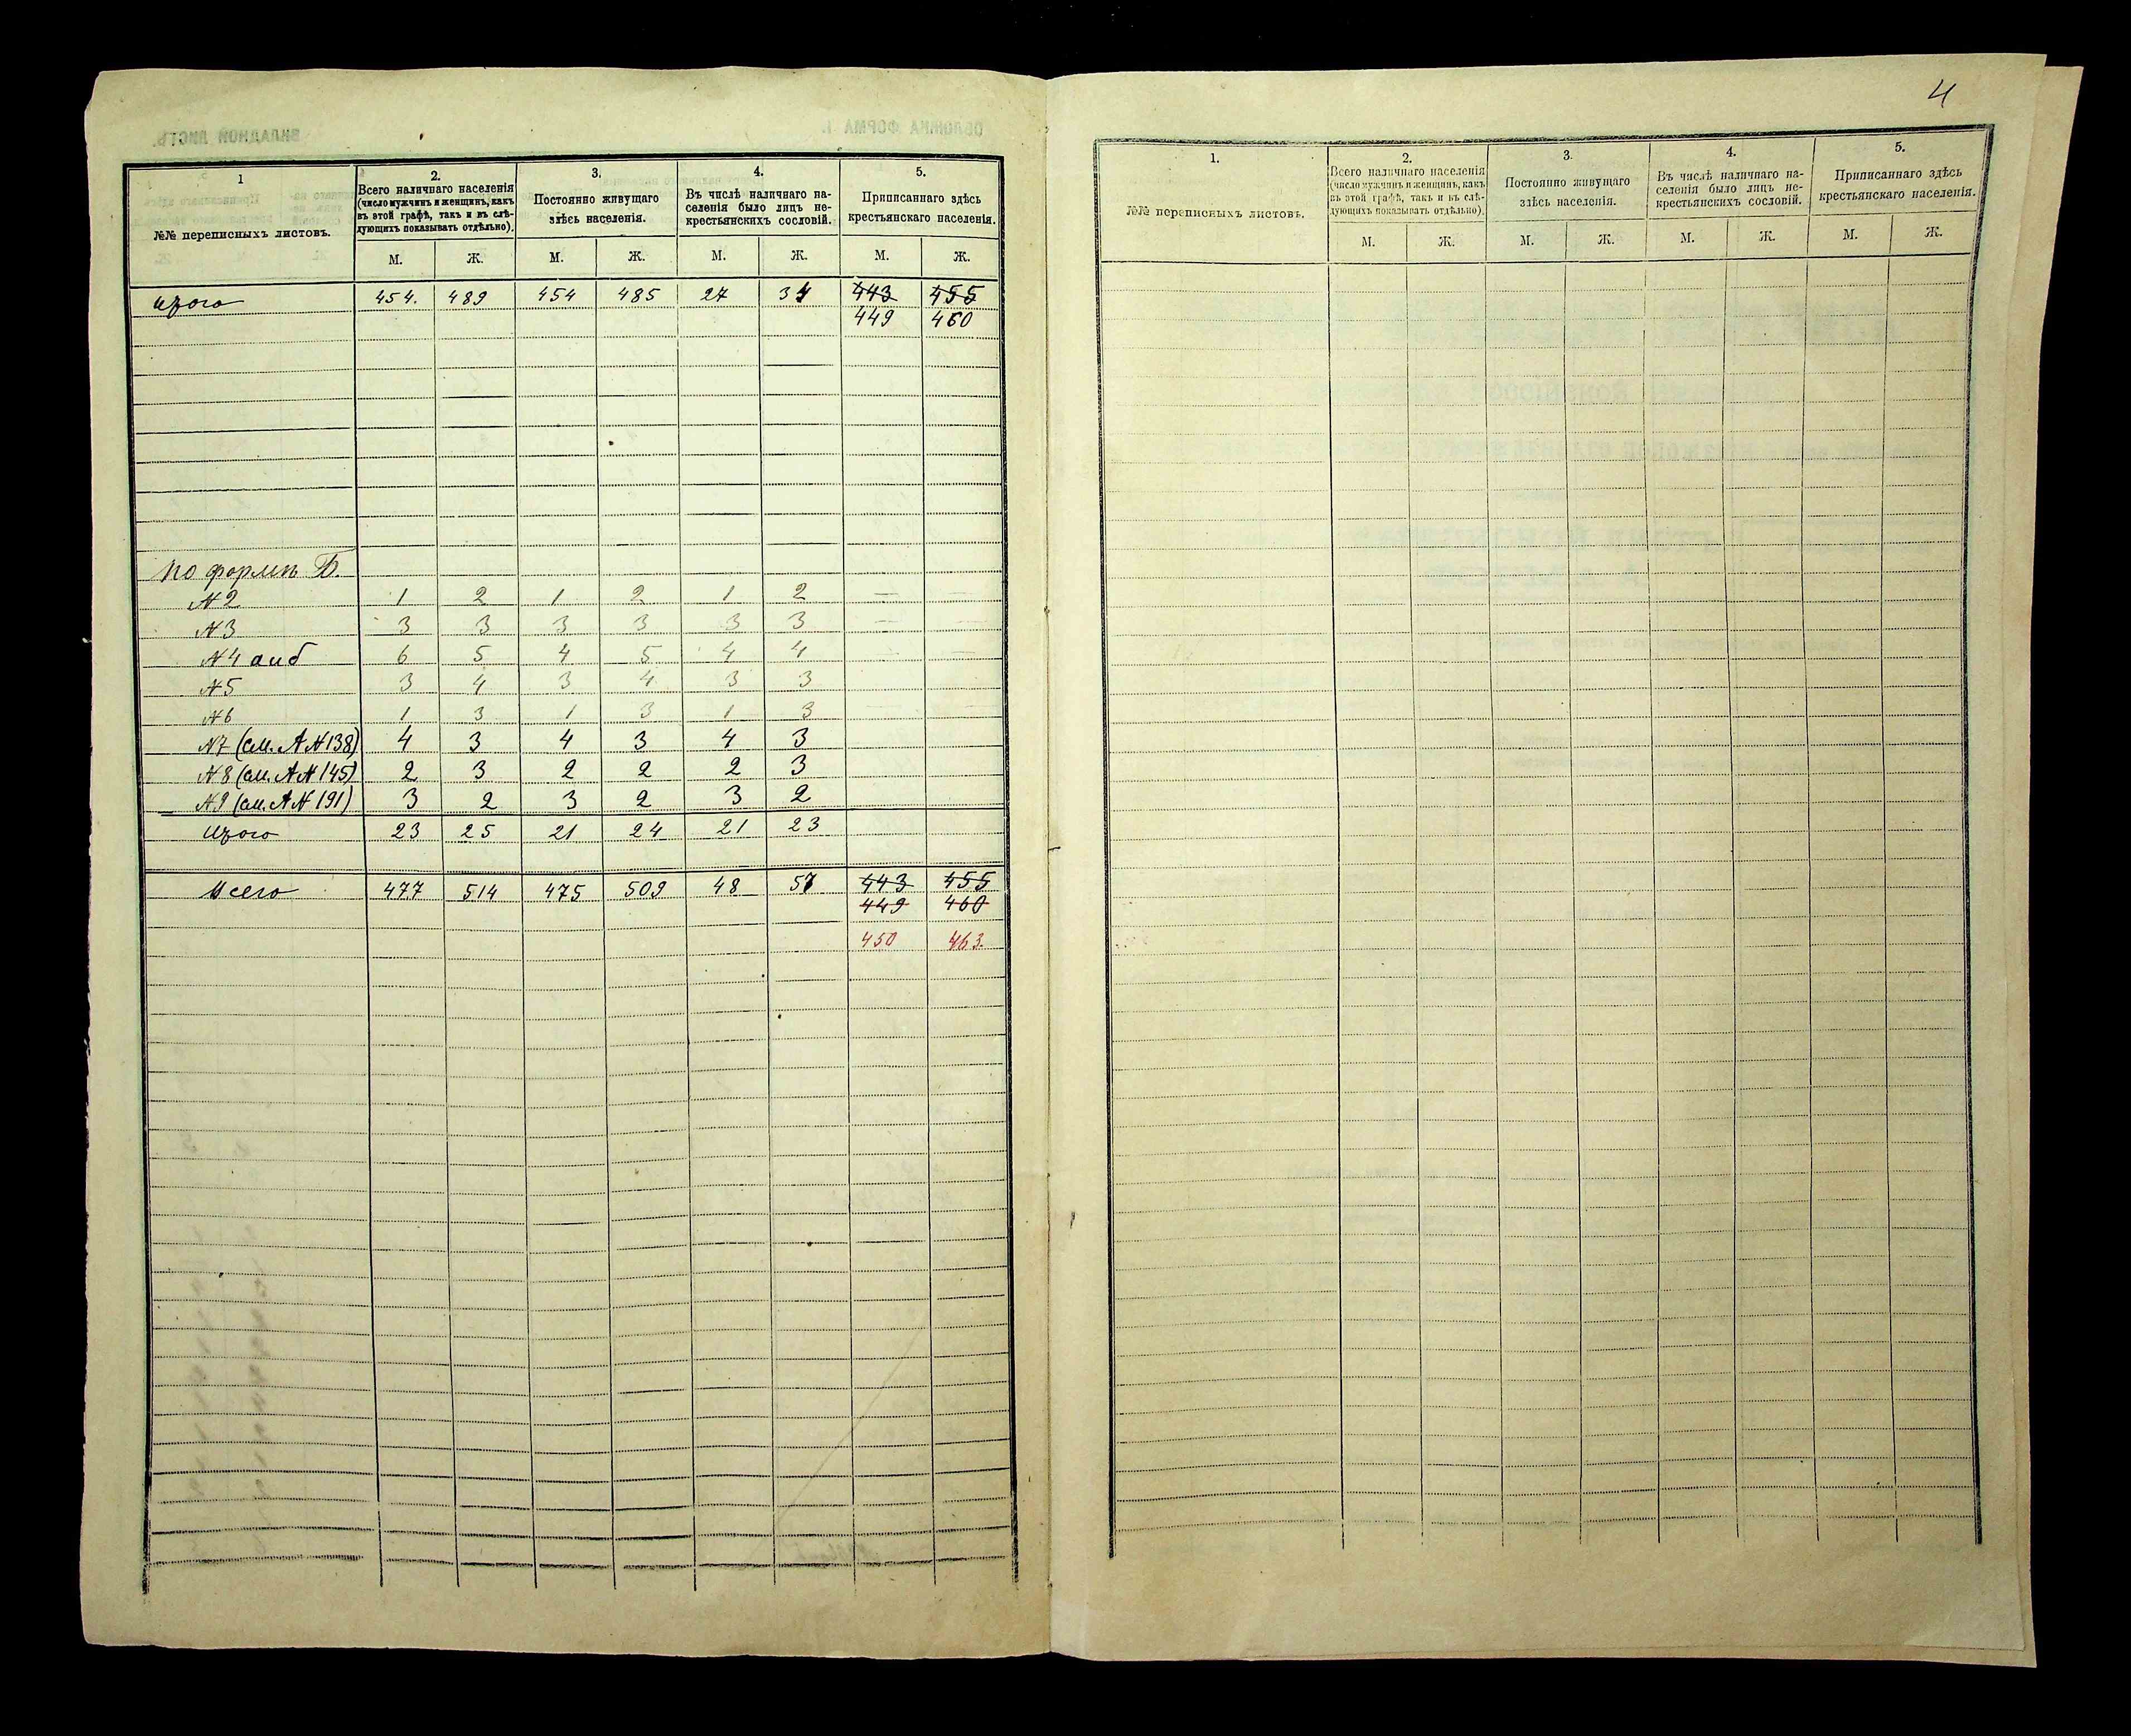 1
2.
3.
4.
5.
№№ переписныхъ листовъ.
Всего наличнаго населенія
(число мужчинъ и женщинъ, какъ
въ этой графѣ, такъ и въ слѣ-
дующихъ показывать отдѣльно).
Постоянно живущаго
здѣсь населенія.
Въ числѣ наличнаго на-
селенія было лицъ не-
крестьянскихъ сословій.
Приписаннаго здѣсь
крестьянскаго населенія.
М. Ж. М. Ж. М. Ж. М. Ж.
Итого 454. 489 454 485 27 34 443 455
449 460
По формѣ Б.
№2 1 2 1 2 1 2 — —
№3 3 3 3 3 3 3 — —
№4 а и б 6 5 4 5 4 4 — —
№5 3 4 3 4 3 3
№6 1 3 1 3 1 3
№7 (см. А №138) 4 3 4 3 4 3
№8 (см. А №145) 2 3 2 2 2 3
№9 (см. А №191) 3 2 3 2 3 2
Итого 23 25 21 24 21 23
Всего 477 514 475 509 48 57 443 455
449 460
450 463.
4
1.
2.
3.
4.
5.
№№ переписныхъ листовъ.
Всего наличнаго населенія
(число мужчинъ и женщинъ, какъ
въ этой графѣ, такъ и въ слѣ-
дующихъ показывать отдѣльно).
Постоянно живущаго
здѣсь населенія.
Въ числѣ наличнаго на-
селенія было лицъ не-
крестьянскихъ сословій.
Приписаннаго здѣсь
крестьянскаго населенія.
М. Ж. М. Ж. М. Ж. М. Ж.